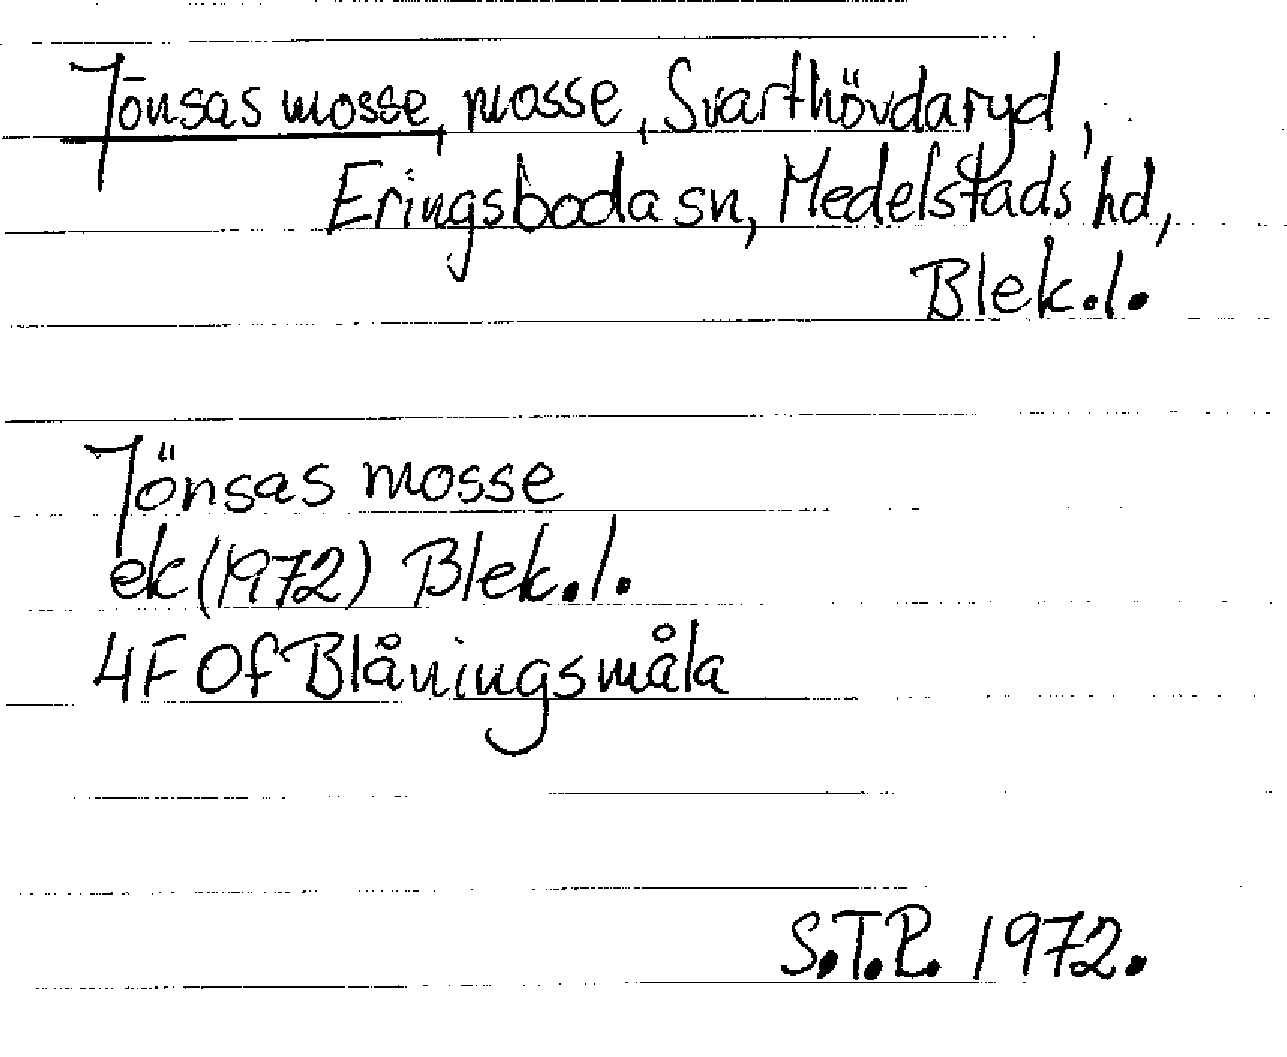 Jönsas mosse, mosse, Svarthövdaryd,
Eringsboda sn, Medelstads hd,
Blek.l.
Jönsas mosse
ek (1972) Blek.l.
4F Of Blåningsmåla
S.T.P. 1972.